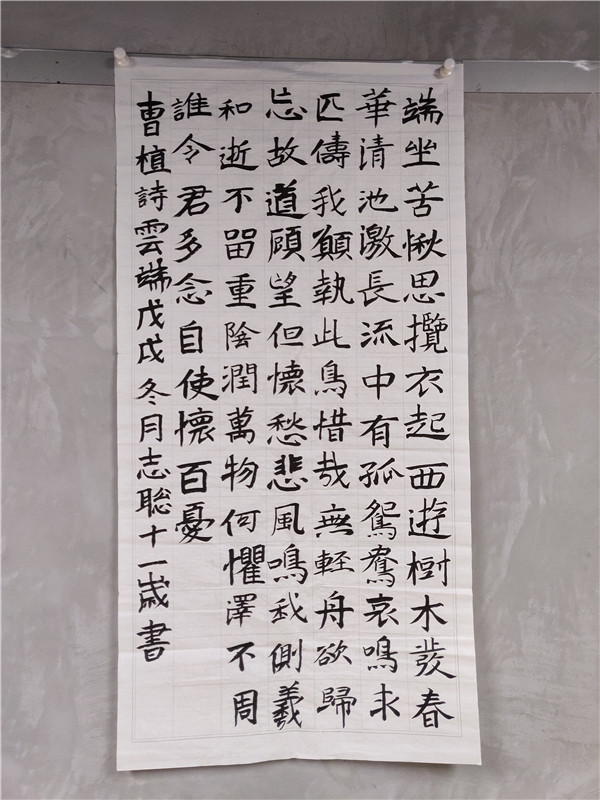 端坐苦愀思攬衣起西遊樹木發春
華清池激長流中有孤鴛鴦哀鳴求
匹儔我願執此鳥惜哉無輕舟欲歸
忘故道顧望但懷愁悲風鳴我側羲
和逝不留重陰潤萬物何懼澤不周
誰令君多念自使懷百憂
曹植詩雲端戊戌冬月志聰十一歲書